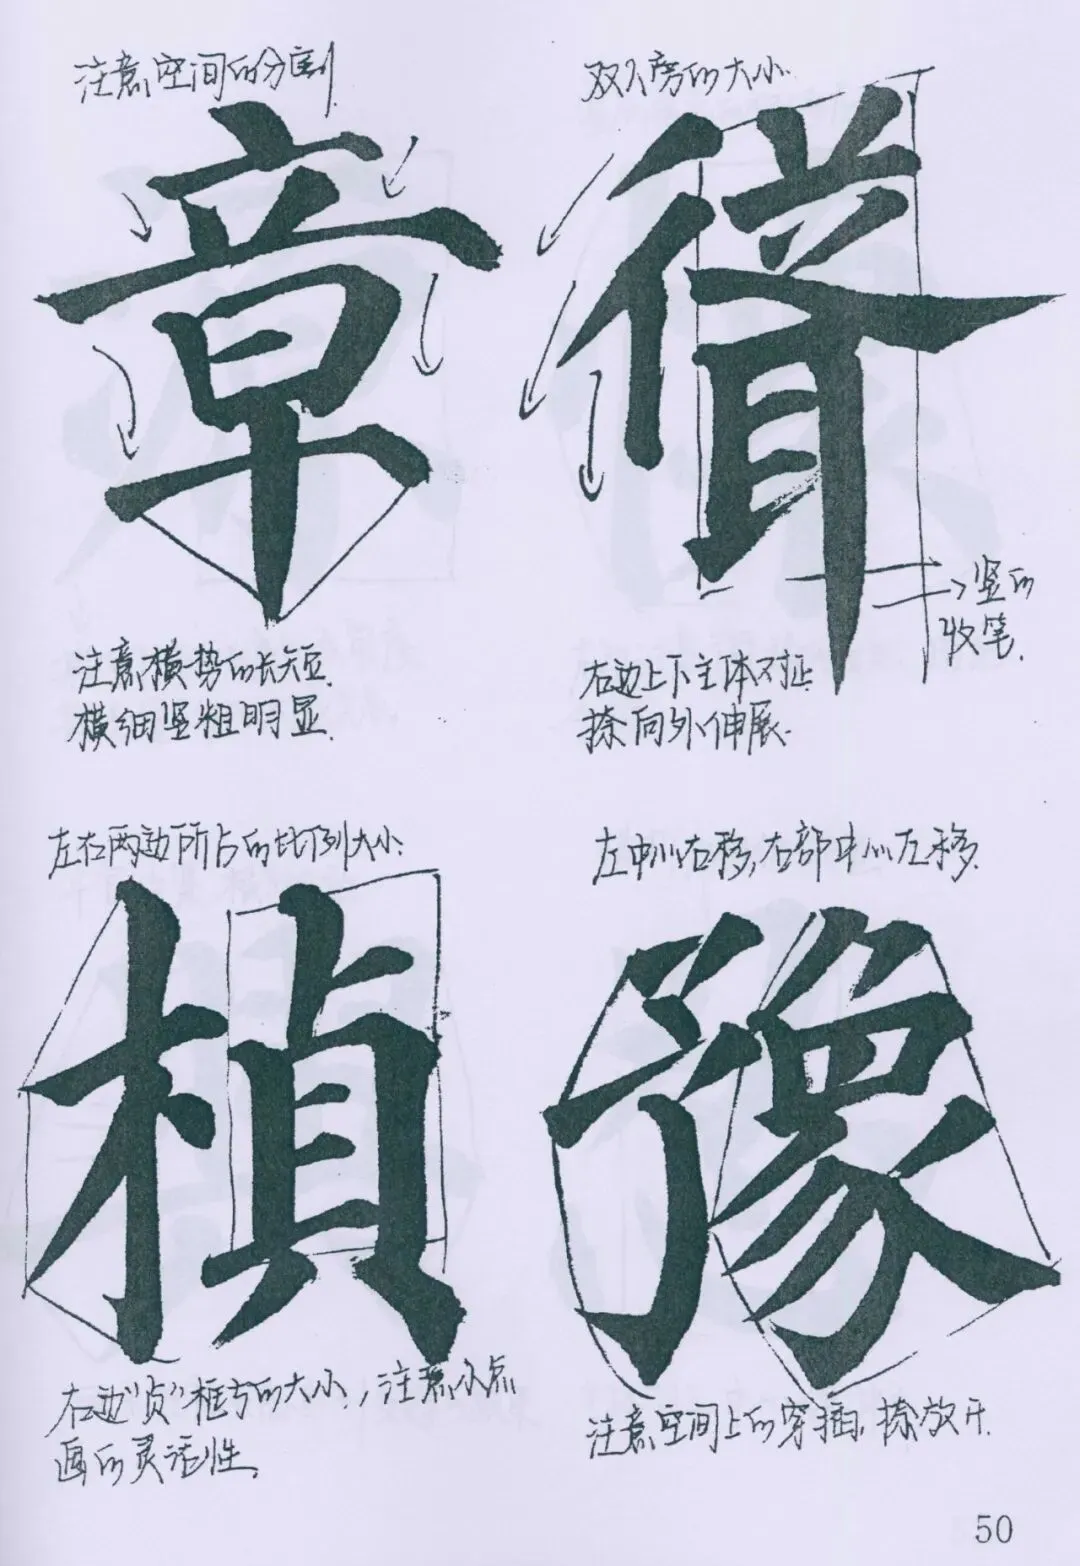 注意空间的分割.
章
注意横势的长短.
横细竖粗明显.
双人旁的大小.
聳
竖的
收笔.
右边上下主体对正.
捺向外伸展.
左右两边所占的比例大小.
楨
右边"贞"框方的大小,注意小点
画的灵活性.
左中心右移,右部中心左移.
豫
注意空间上的穿插,捺放开.
50